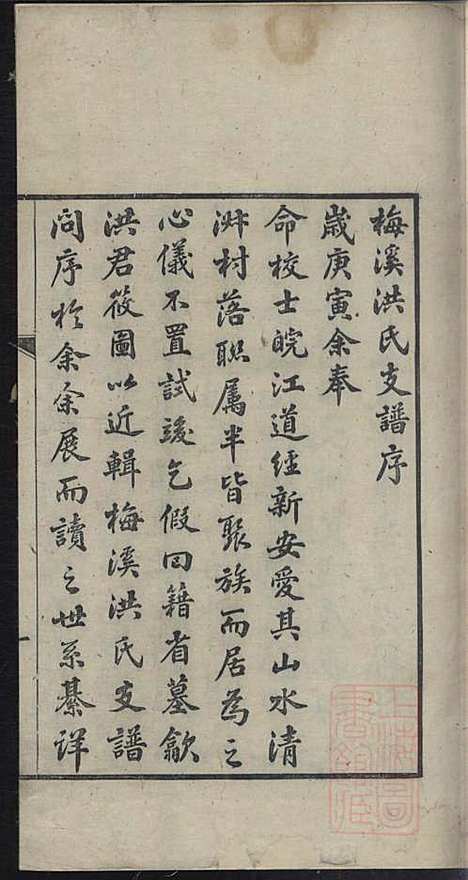 梅溪洪氏支譜序
歲庚寅余奉
命校士皖江道經新安愛其山水清
淑村落聯属半皆聚族而居為之
心儀不置試竣乞假回籍省墓歙
洪君筱圖以近輯梅溪洪氏支譜
問序於余余展而讀之世系綦詳
上海圖書館藏